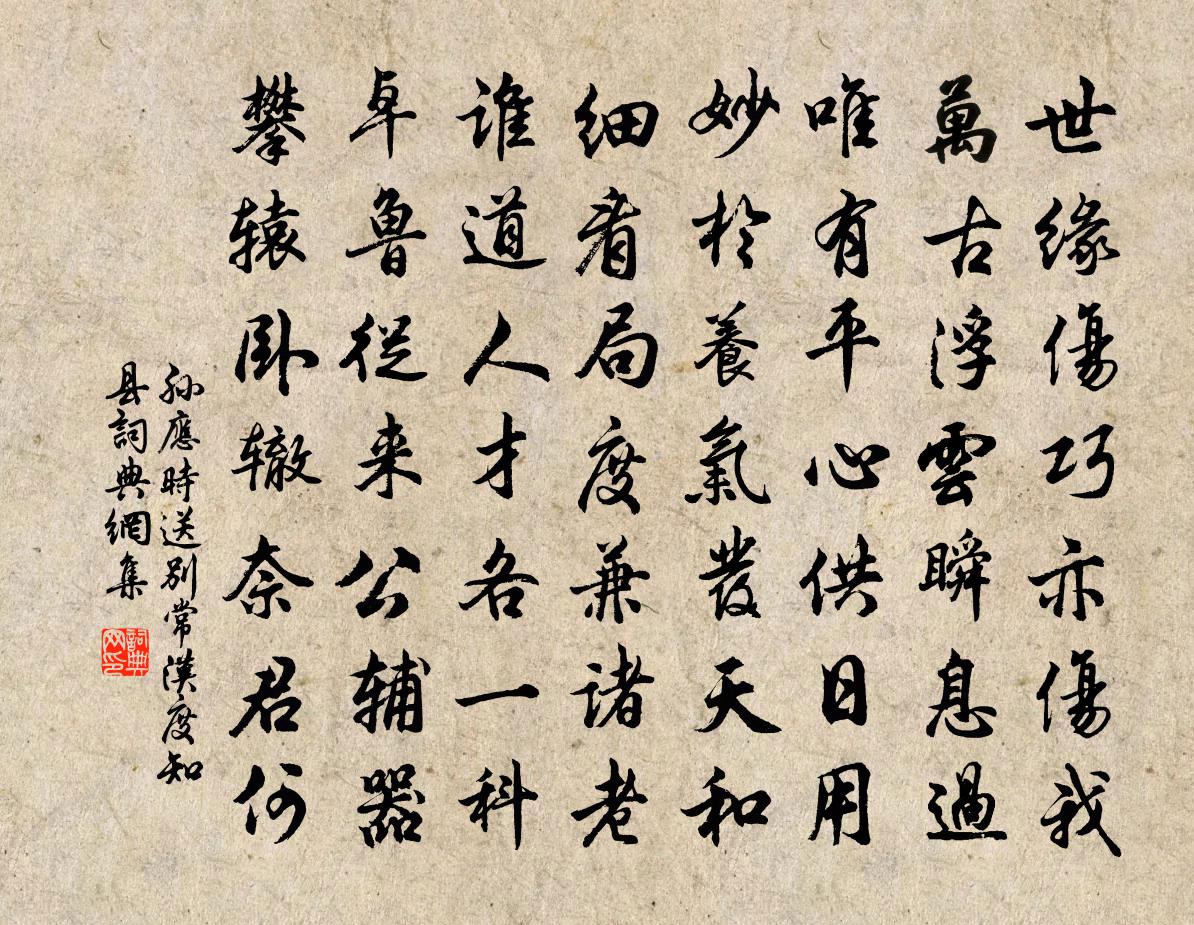 世緣傷巧亦傷我
萬古浮雲瞬息過
唯有平心供日用
妙於養氣發天和
細看局度兼諸老
誰道人才各一科
卓魯從来公辅器
攀辕卧辙奈君何
孙應時送别常漢度知
县詞典網集
詞典
网印